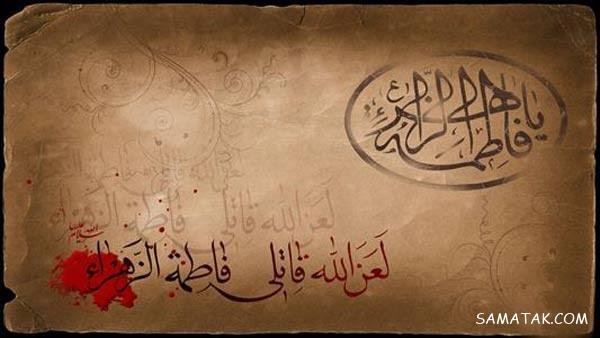 یا فاطمة الزهراء
ع
لعن الله قاتلی فاطمة الزهراء
سلام الله علیها
لَعَنَ الله قاتِلی فاطمة الزَّهراء
SAMATAK.COM